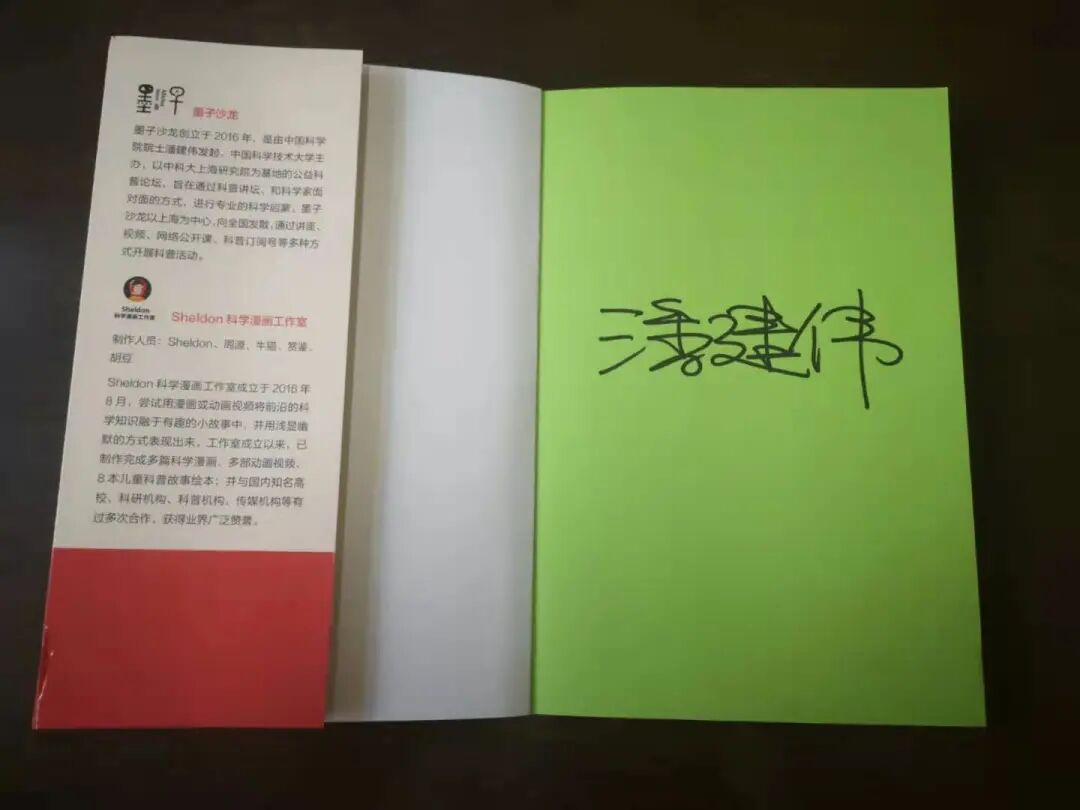 墨子沙龙
墨子沙龙创立于2016年，是由中国科学
院院士潘建伟发起，中国科学技术大学主
办，以中科大上海研究院为基地的公益科
普论坛，旨在通过科普讲坛、和科学家面
对面的方式，进行专业的科学启蒙。墨子
沙龙以上海为中心，向全国发散，通过讲座、
视频、网络公开课、科普订阅号等多种方
式开展科普活动。
Sheldon
科学漫画工作室
Sheldon 科学漫画工作室
制作人员：Sheldon、周源、牛猫、赏鉴、
胡豆
Sheldon 科学漫画工作室成立于2016年
8月，尝试用漫画或动画视频将前沿的科
学知识融于有趣的小故事中，并用浅显幽
默的方式表现出来。工作室成立以来，已
制作完成多篇科学漫画、多部动画视频、
8本儿童科普故事绘本；并与国内知名高
校、科研机构、科普机构、传媒机构等有
过多次合作，获得业界广泛赞誉。
潘建伟